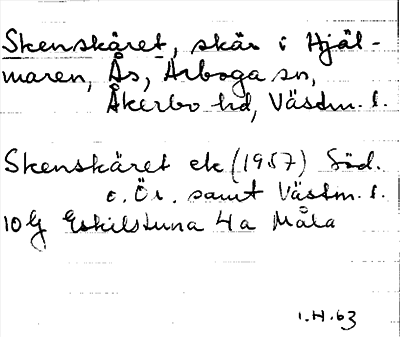 Skenskäret, skär i Hjäl-
maren, Ås, Arboga sn,
Åkerbo hd, Västm. l.
Skenskäret ek (1957) Söd.
o. Ör. samt Västm. l.
10 G Eskilstuna 4a Måla
1.H.63